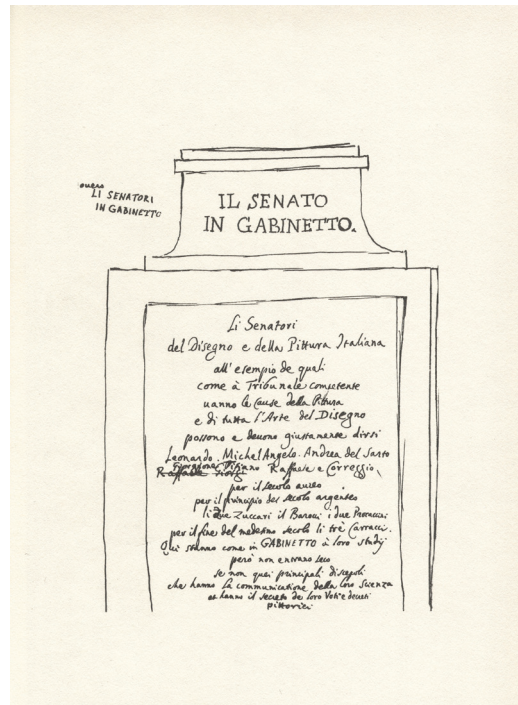 overo
LI SENATORI
IN GABINETTO
IL SENATO
IN GABINETTO.
Li Senatori
del Disegno e della Pittura Italiana
all'esempio de quali
come à Tribunale competente
uanno le Cause della Pittura
e di tutta l'Arte del Disegno
possono e deuono giustamente dirsi
Leonardo. MichelAngelo. Andrea del Sarto
Giorgione Titiano Raffaele e Correggio,
Raffaelle Giorgi
per il secolo aureo
per il principio del secolo argenteo
li due Zuccari il Barocci i due Procaccini
per il fine del medesimo secolo li trè Carracci.
Qui stanno come in GABINETTO à loro studij
però non entrano seco
se non quei principali discepoli
che hanno la communicatione della loro Scienza
et hanno il secreto de loro Voti e decreti
pittorici